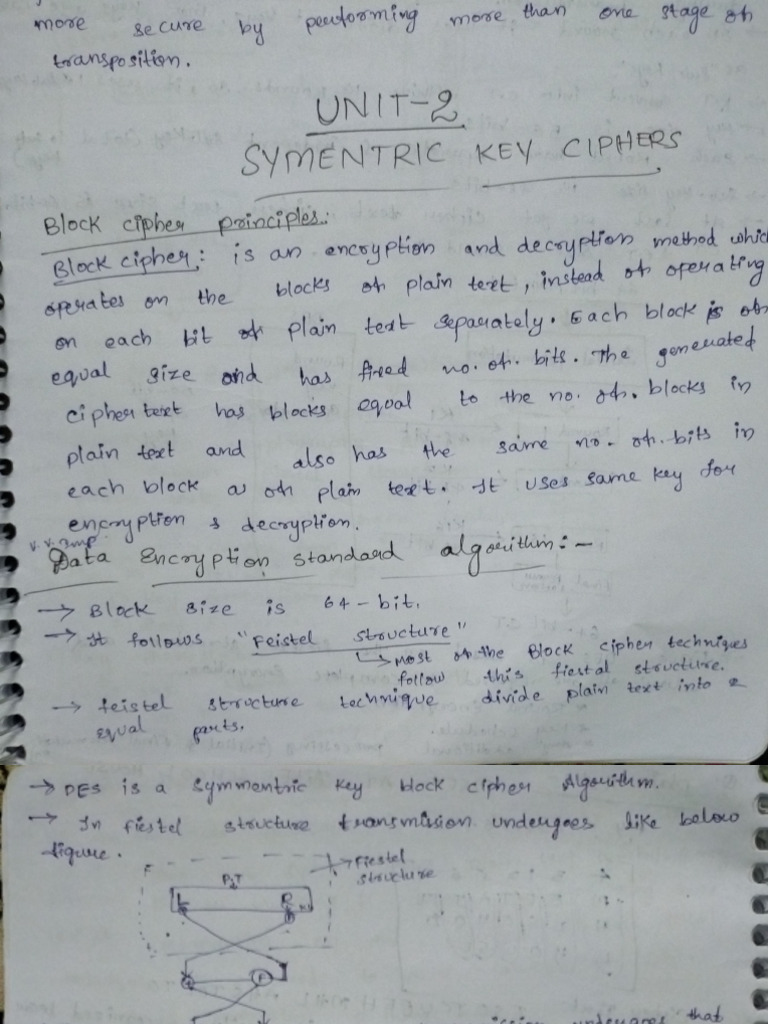 more secure by performing more than one stage of
transposition.
UNIT-2
SYMENTRIC KEY CIPHERS
Block cipher principles:
Block cipher: is an encryption and decryption method whic
operates on the blocks of plain text, instead of operating
on each bit of plain text separately. Each block is of
equal size and has fixed no. of. bits. The generated
ciphertext has blocks equal to the no. of. blocks in
plain text and also has the same no. of. bits in
each block as of plain text. It uses same key for
encryption & decryption.
V.V.Imp
Data Encryption standard algorithm:-
→ Block size is 64-bit.
→ It follows "Feistel structure"
↳ Most of the Block cipher techniques
follow this fiestal structure.
→ feistel structure technique divide plain text into 2
equal parts.
→ DES is a symmentric key block cipher Algorithm.
→ In fiestel structure transmission undergoes like below
figure.
→ Fiestel
structure
P.T
L R
F
undergoes that